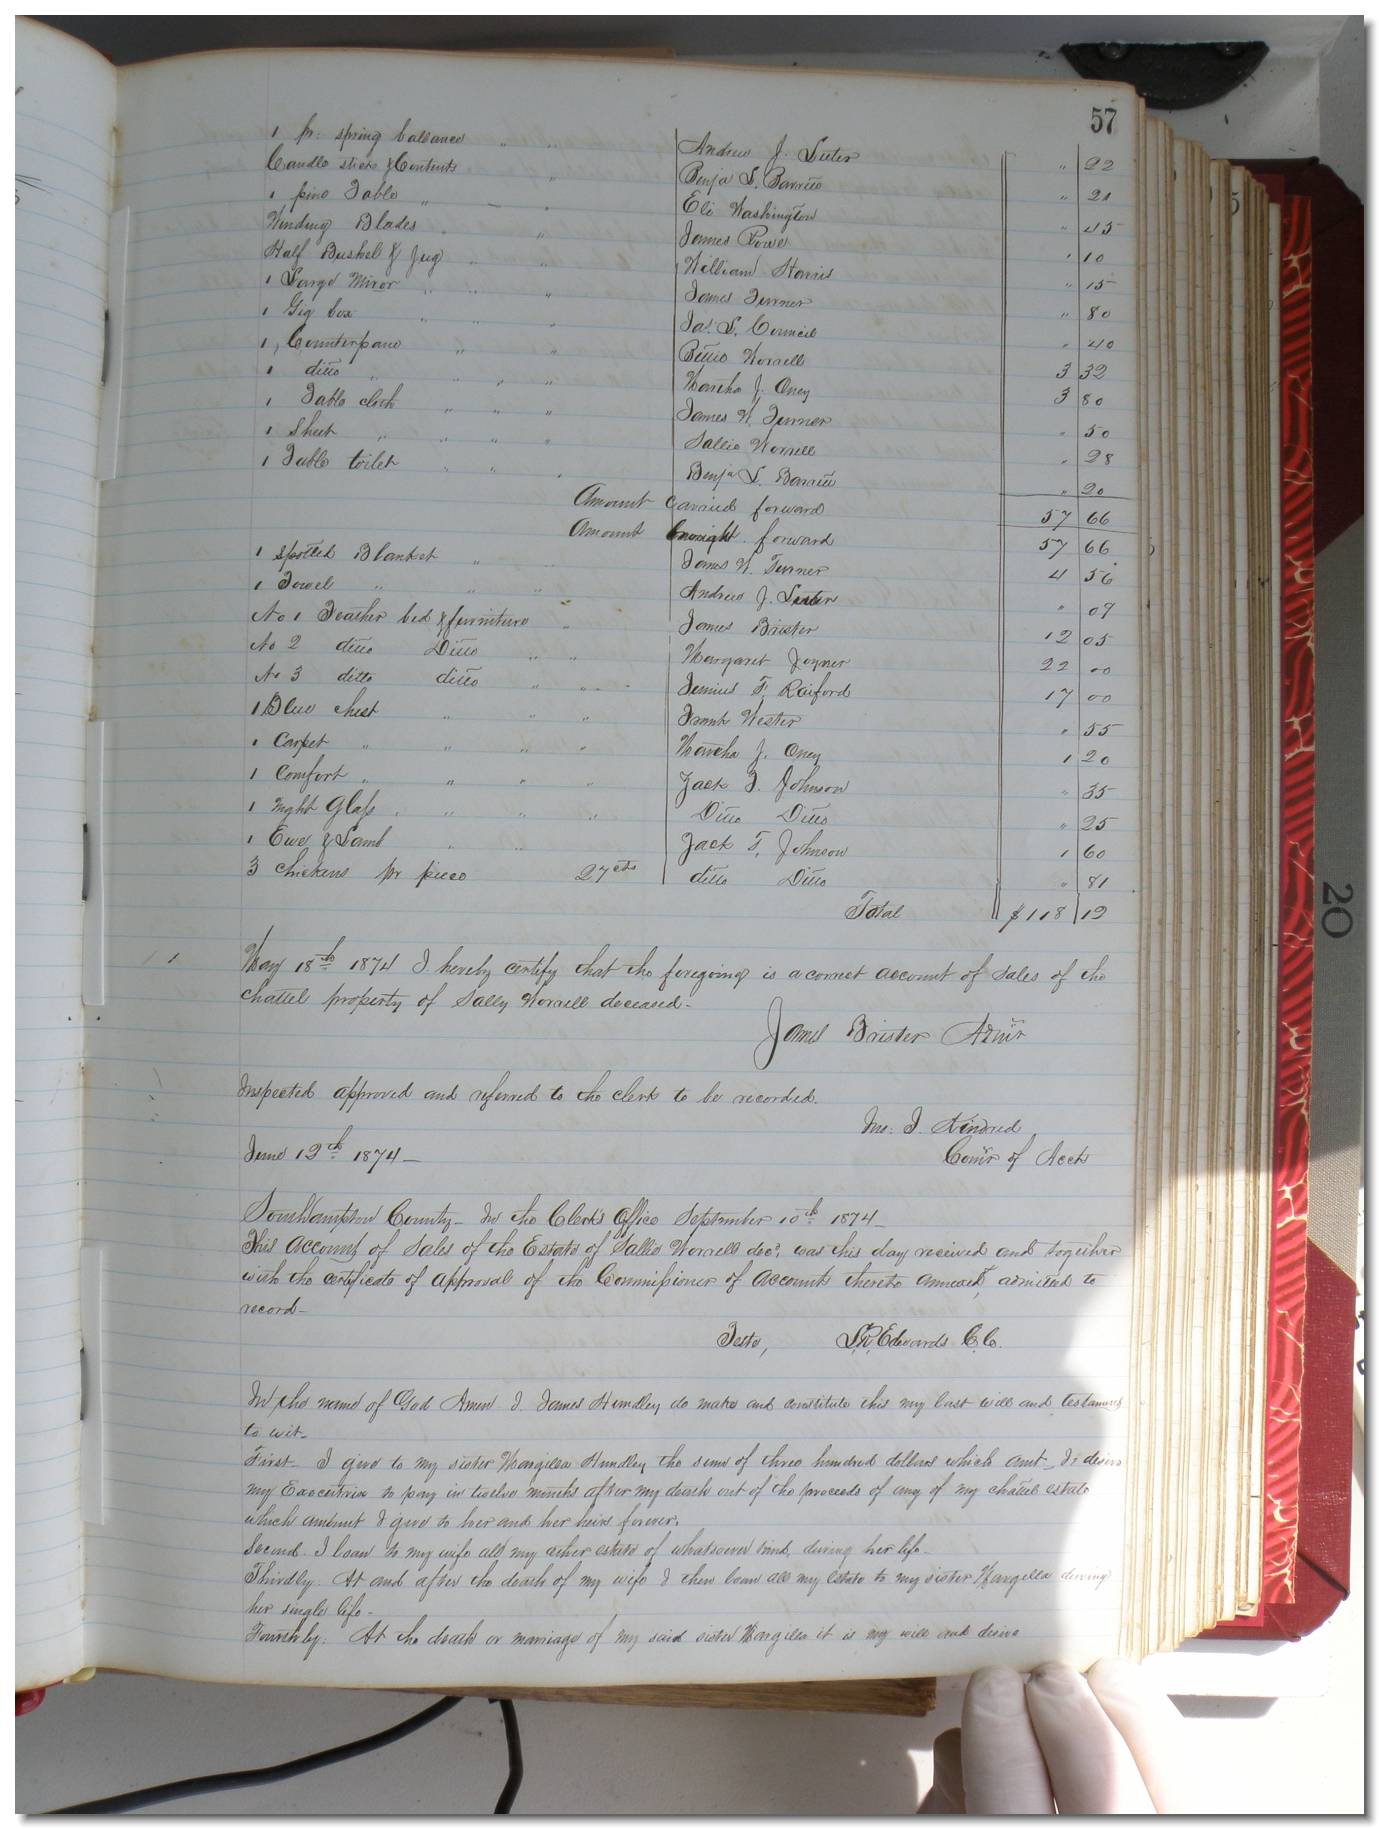 57
1 pr. spring ballance " " Andrew J. Suter " 22
Candle stick & Contents " Benja S. Barrett " 21
1 pine Table " " Eli Washington " 45
Winding Blades " " James Powe " 10
Half Bushel & Jug " " William Harris " 15
1 Large Miror " " " James Turner " 80
1 Gig box " " Jas. S. Council " 40
1, Counterpane " " Worrell 3 32
1 ditto " " " " Martha J. Oney 3 80
1 Table cloth " " " James W. Turner " 50
1 Sheet " " " " Sallie Worrell " 28
1 Table toilet " " " Benja S. Barrett " 20
Amount carried forward 57 66
Amount brought forward 57 66
1 spotted Blanket " James W. Turner 4 56
1 Towel " " " Andrew J. Suter " 09
No 1 Feather bed & furniture " James Brister 12 05
No 2 ditto Ditto " " Margaret Joyner 22 00
No 3 ditto ditto " " Junius T. Raiford 17 00
1 Blue chest " " " Frank Wester " 55
1 Carpet " " " " Martha J. Oney 1 20
1 Comfort " " " " Jack T. Johnson " 35
1 night Glass " " " " Ditto Ditto " 25
1 Ewe & Lamb " " Jack T. Johnson 1 60
3 Chickens pr piece 27 cts ditto Ditto " 81
Total $118 12
May 18th 1874 I hereby certify that the foregoing is a correct account of sales of the
chattel property of Sally Worrell deceased-
James Brister Admr
Inspected approved and referred to the clerk to be recorded.
Jno. J. Kindred
June 12th 1874 — Comr of Accts
Southampton County- In the Clerk's Office September 10th 1874-
This Account of Sales of the Estate of Sallie Worrell decd, was this day received and together
with the certificate of approval of the Commissioner of Accounts thereto annexed, admitted to
record-
Teste, L.R. Edwards C.C.
In the name of God Amen I. James Hundley do make and constitute this my last will and testament
to wit-
First- I give to my sister Margilla Hundley the sum of three hundred dollars which amt- I desire
my Executrix to pay in twelve months after my death out of the proceeds of any of my chattel estate
which amount I give to her and her heirs forever.
Second. I loan to my wife all my other estate of whatsoever kind, during her life-
Thirdly. At and after the death of my wife I then loan all my Estate to my sister Margella during
her single life-
Fourthly: At the death or marriage of my said sister Margilla it is my will and desire
20